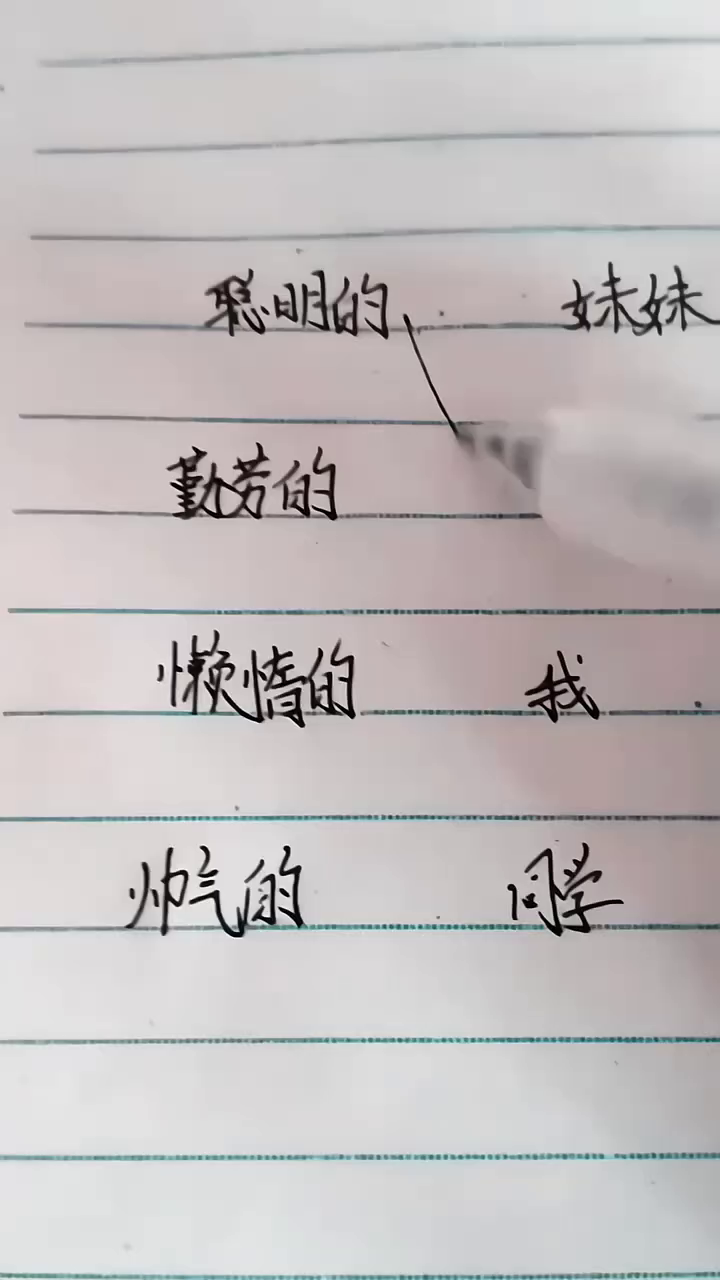 聪明的 妹妹
勤劳的
懒惰的 我
帅气的 同学